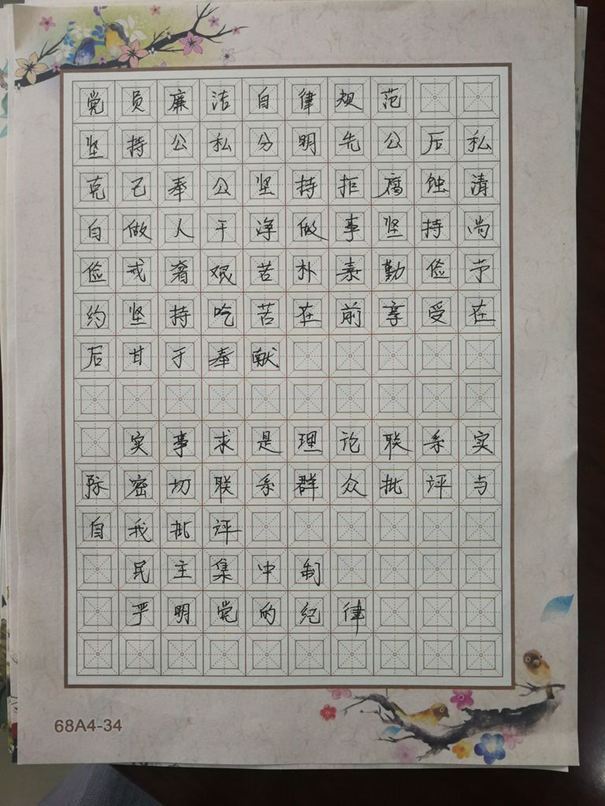 党员廉洁自律规范
坚持公私分明先公后私
克己奉公坚持拒腐蚀清
白做人干净做事坚持尚
俭戒奢艰苦朴素勤俭节
约坚持吃苦在前享受在
后甘于奉献
实事求是理论联系实
际密切联系群众批评与
自我批评
民主集中制
严明党的纪律
68A4-34